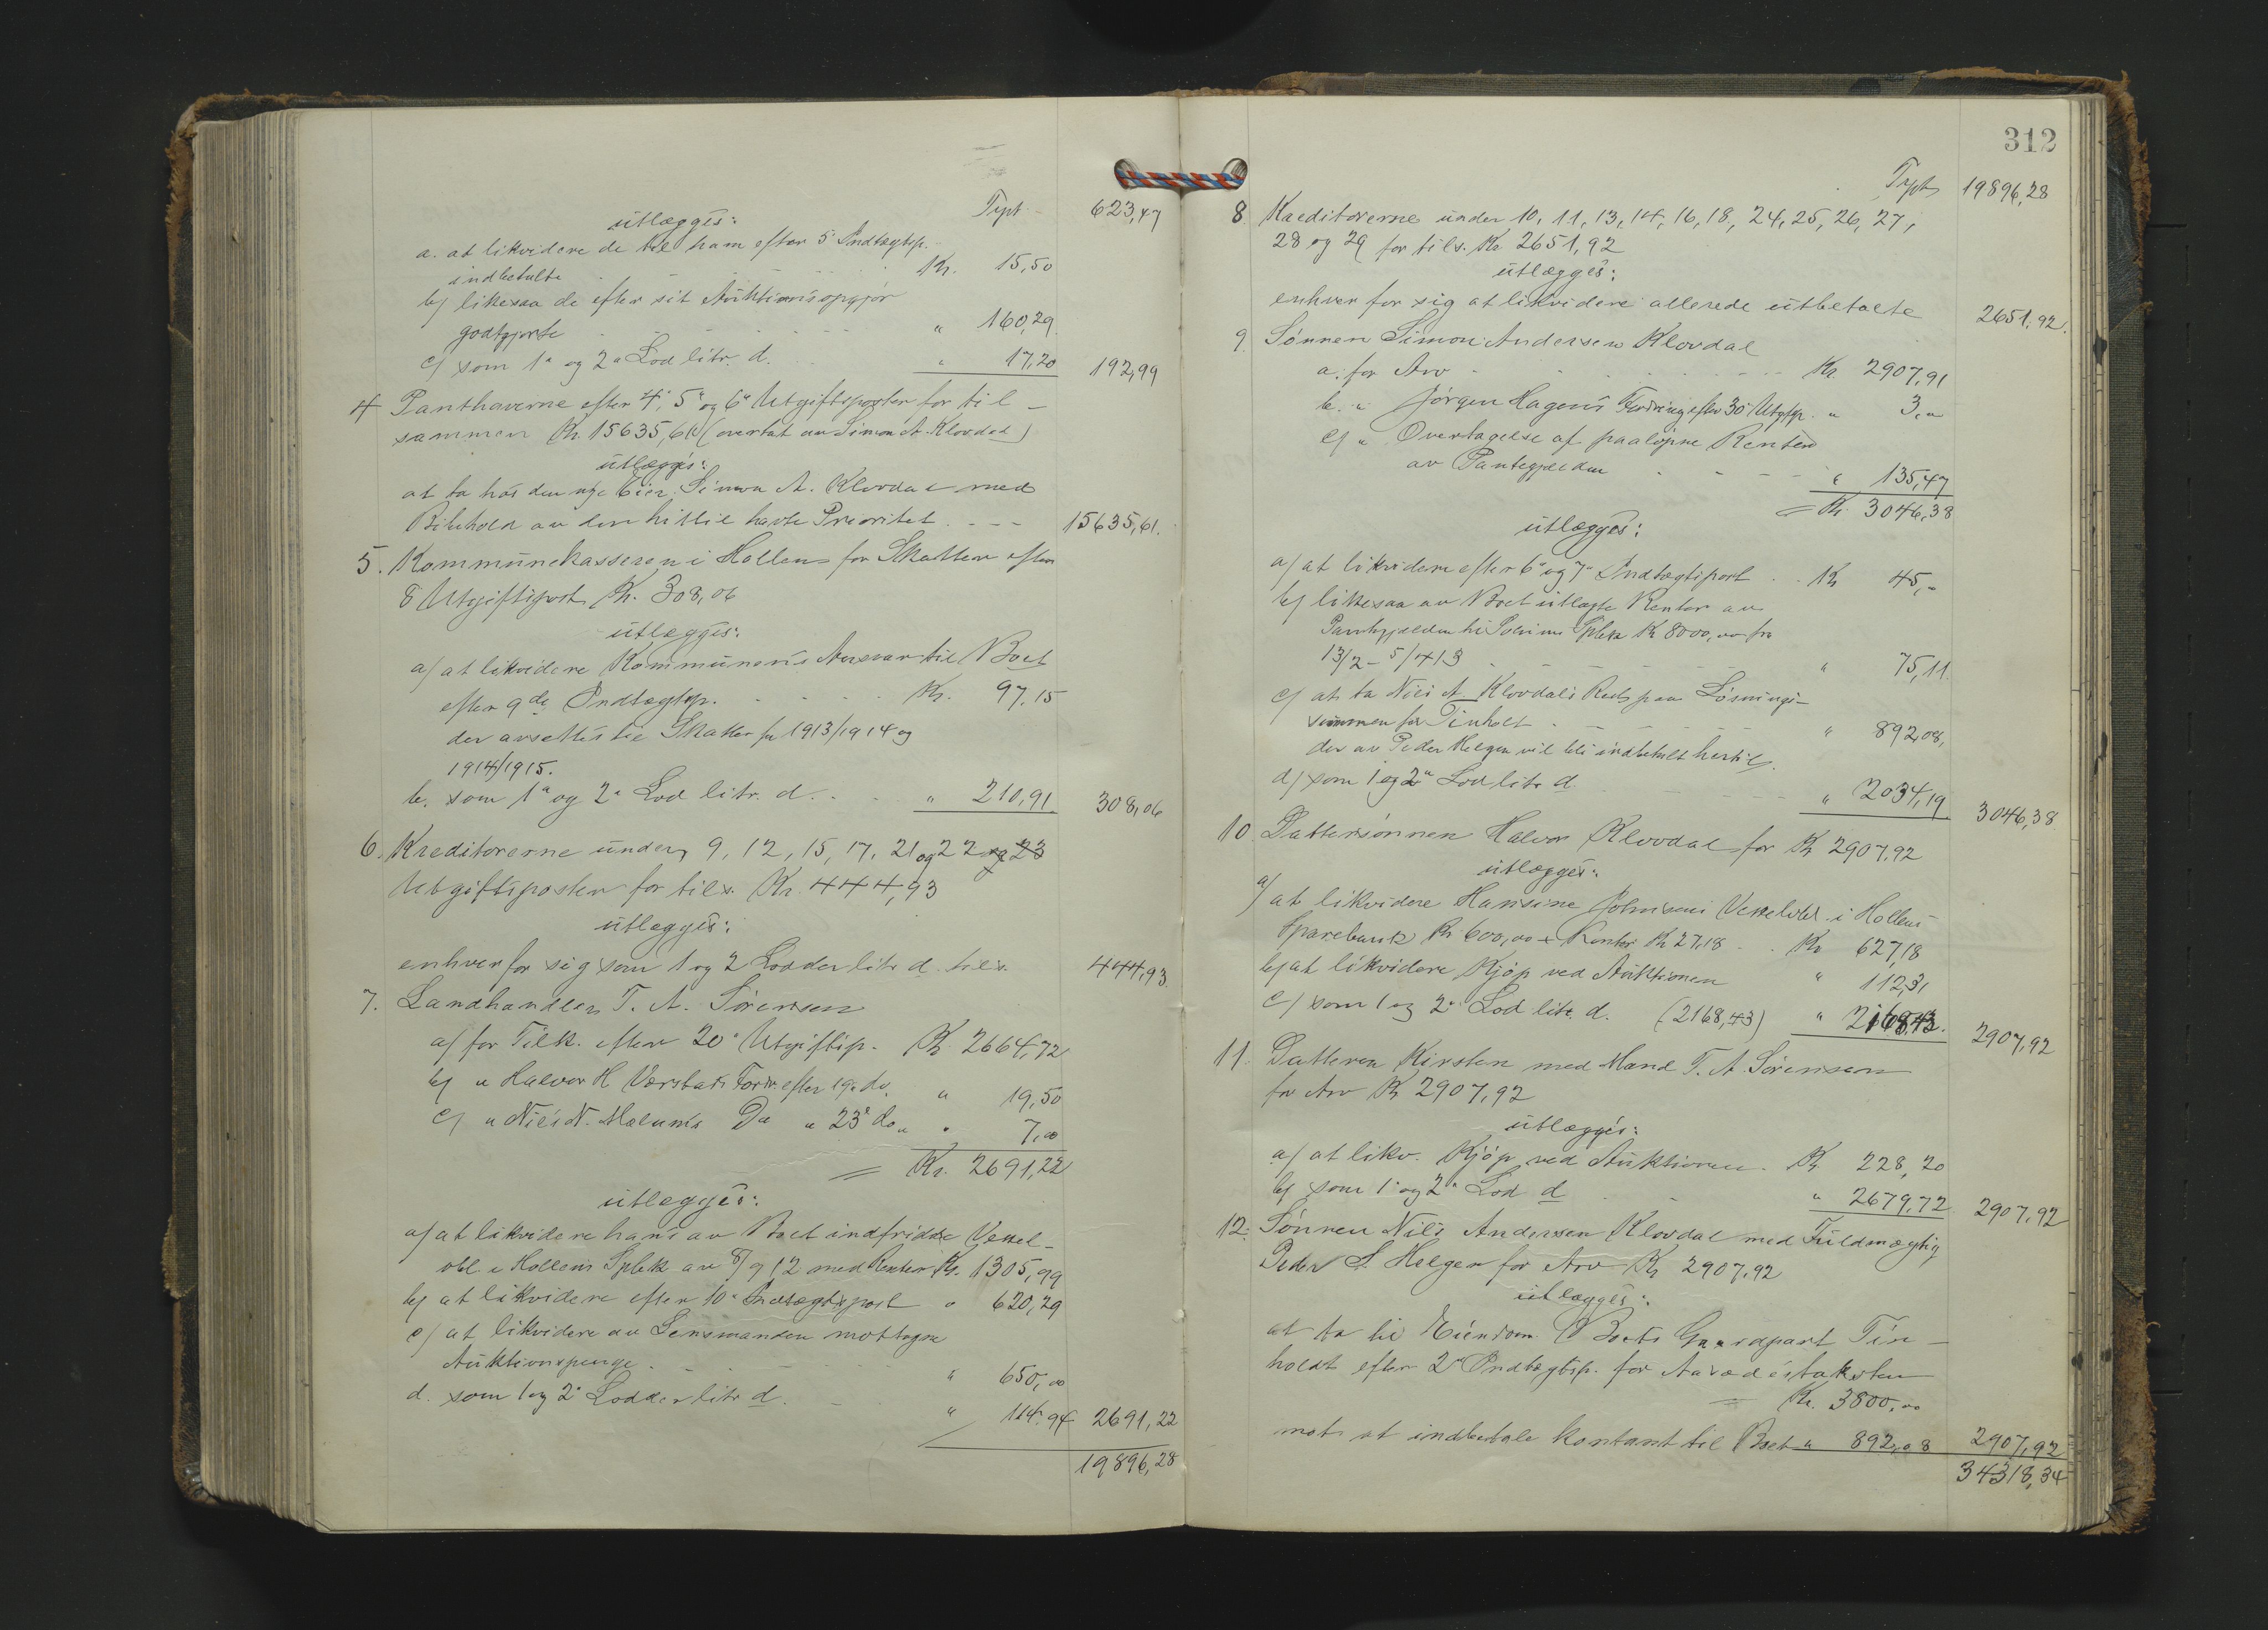 Trpt. 623,47
utlægges:
a. at likvidere de til ham efter 5' Indtægtsp.
indbetalte Kr. 15,50
b) likesaa de efter sit Auktionsopgjør
godtgjorte " 160,29
c) som 1' og 2' Lod litr. d. " 17,20 192,99
4 Panthaverne efter 4', 5' og 6' Utgiftsposter for til-
sammen Kr. 15635,61 (overtat av Simon A. Klovdal)
utlægges:
at ta hos den nye Eier Simon A. Klovdal med
Bibehold av den hittil havte Prioritet 15635,61.
5. Kommunekasseren i Hollen for Skatter efter
8 Utgiftspost Kr. 308,06
utlægges:
a) at likvidere Kommunens Ansvar til Boet
efter 9de Indtægtsp. Kr. 97,15
der avsettes til Skatter for 1913/1914 og
1914/1915.
b. som 1' og 2' Lod litr. d. " 210,91 308,06
6. Kreditorerne under 9, 12, 15, 17, 21 og 22 og 23
Utgiftsposter for tils. Kr. 444,93
utlægges:
enhver for sig som 1 og 2 Lodder litr d. tils. 444,93
7. Landhandler T. A. Sørensen
a) for Tilk. efter 20' Utgiftsp. Kr. 2664,72
b) " Halvor H. Værstads Fordr. efter 19' do. " 19,50
c) " Nils N. Mælums Do " 23' do " " 7,00
= Kr. 2691,22
utlægges:
a) at likvidere hans av Boet indfridde Vexel-
obl. i Hollens Spbk av 8/9 12 med Renter Kr. 1305,99
b) at likvidere efter 10' Indtægtspost " 620,29
c) at likvidere av Lensmanden mottagne
Auktionspenge " 650,00
d. som 1 og 2' Lodder litr d. " 114,94 2691,22
19896,28
312
Trpt 19896,28
8. Kreditorerne under 10, 11, 13, 14, 16, 18, 24, 25, 26, 27,
28 og 29 for tils. Kr 2651,92
utlægges:
enhver for sig at likvidere allerede utbetalte 2651,92.
9. Sønnen Simon Andersen Klovdal
a. for Arv Kr. 2907,91
b. " Jørgen Hagens Fordring efter 30' Utgfsp. " 3,"
c) " Overtagelse af paaløpne Renter
av Pantegjælden " 135,47
= Kr. 3046,38
utlægges:
a) at likvidere efter 6' og 7' Indtægtspost Kr 45,"
b) likesaa av Boet utlagte Renter av
Pantegjælden til Solum Spbk Kr 8000,00 fra
13/2 - 5/4 13 " 75,11
c) at ta Nils A. Klovdals Ret paa Løsnings-
summen for Tinholt " 892,08,
der av Peder Helgen vil bli indbetalt hertil.
d) som 1 og 2' Lod litr d " 2034,19 3046,38
10. Dattersønnen Halvor Klovdal for Kr 2907,92
utlægges:
a) at likvidere Hansine Johnsens Vexelobl. i Hollens
Sparebank Kr. 600,00 + Renter Kr 27,18 Kr 627,18
b) at likvidere Kjøp ved Auktionen " 112,31
c) som 1 og 2' Lod litr. d. (2168,43) " 2168,43. 2907,92
11. Datteren Kirsten med Mand T. A. Sørensen
for Arv Kr 2907,92
utlægges:
a) at likv. Kjøp ved Auktionen. Kr 228,20
b) som 1' og 2' Lod d " 2679,72 2907,92
12. Sønnen Nils Andersen Klovdal med Fuldmægtig
Peder S. Helgen for Arv Kr 2907,92
utlægges:
at ta til Eiendom Boets Gaardpart Tin-
holdt efter 2' Indtægtsp. for Aasædestaksten
= Kr. 3800,00
mot at indbetale kontant til Boet " 892,08 2907,92
34318,34